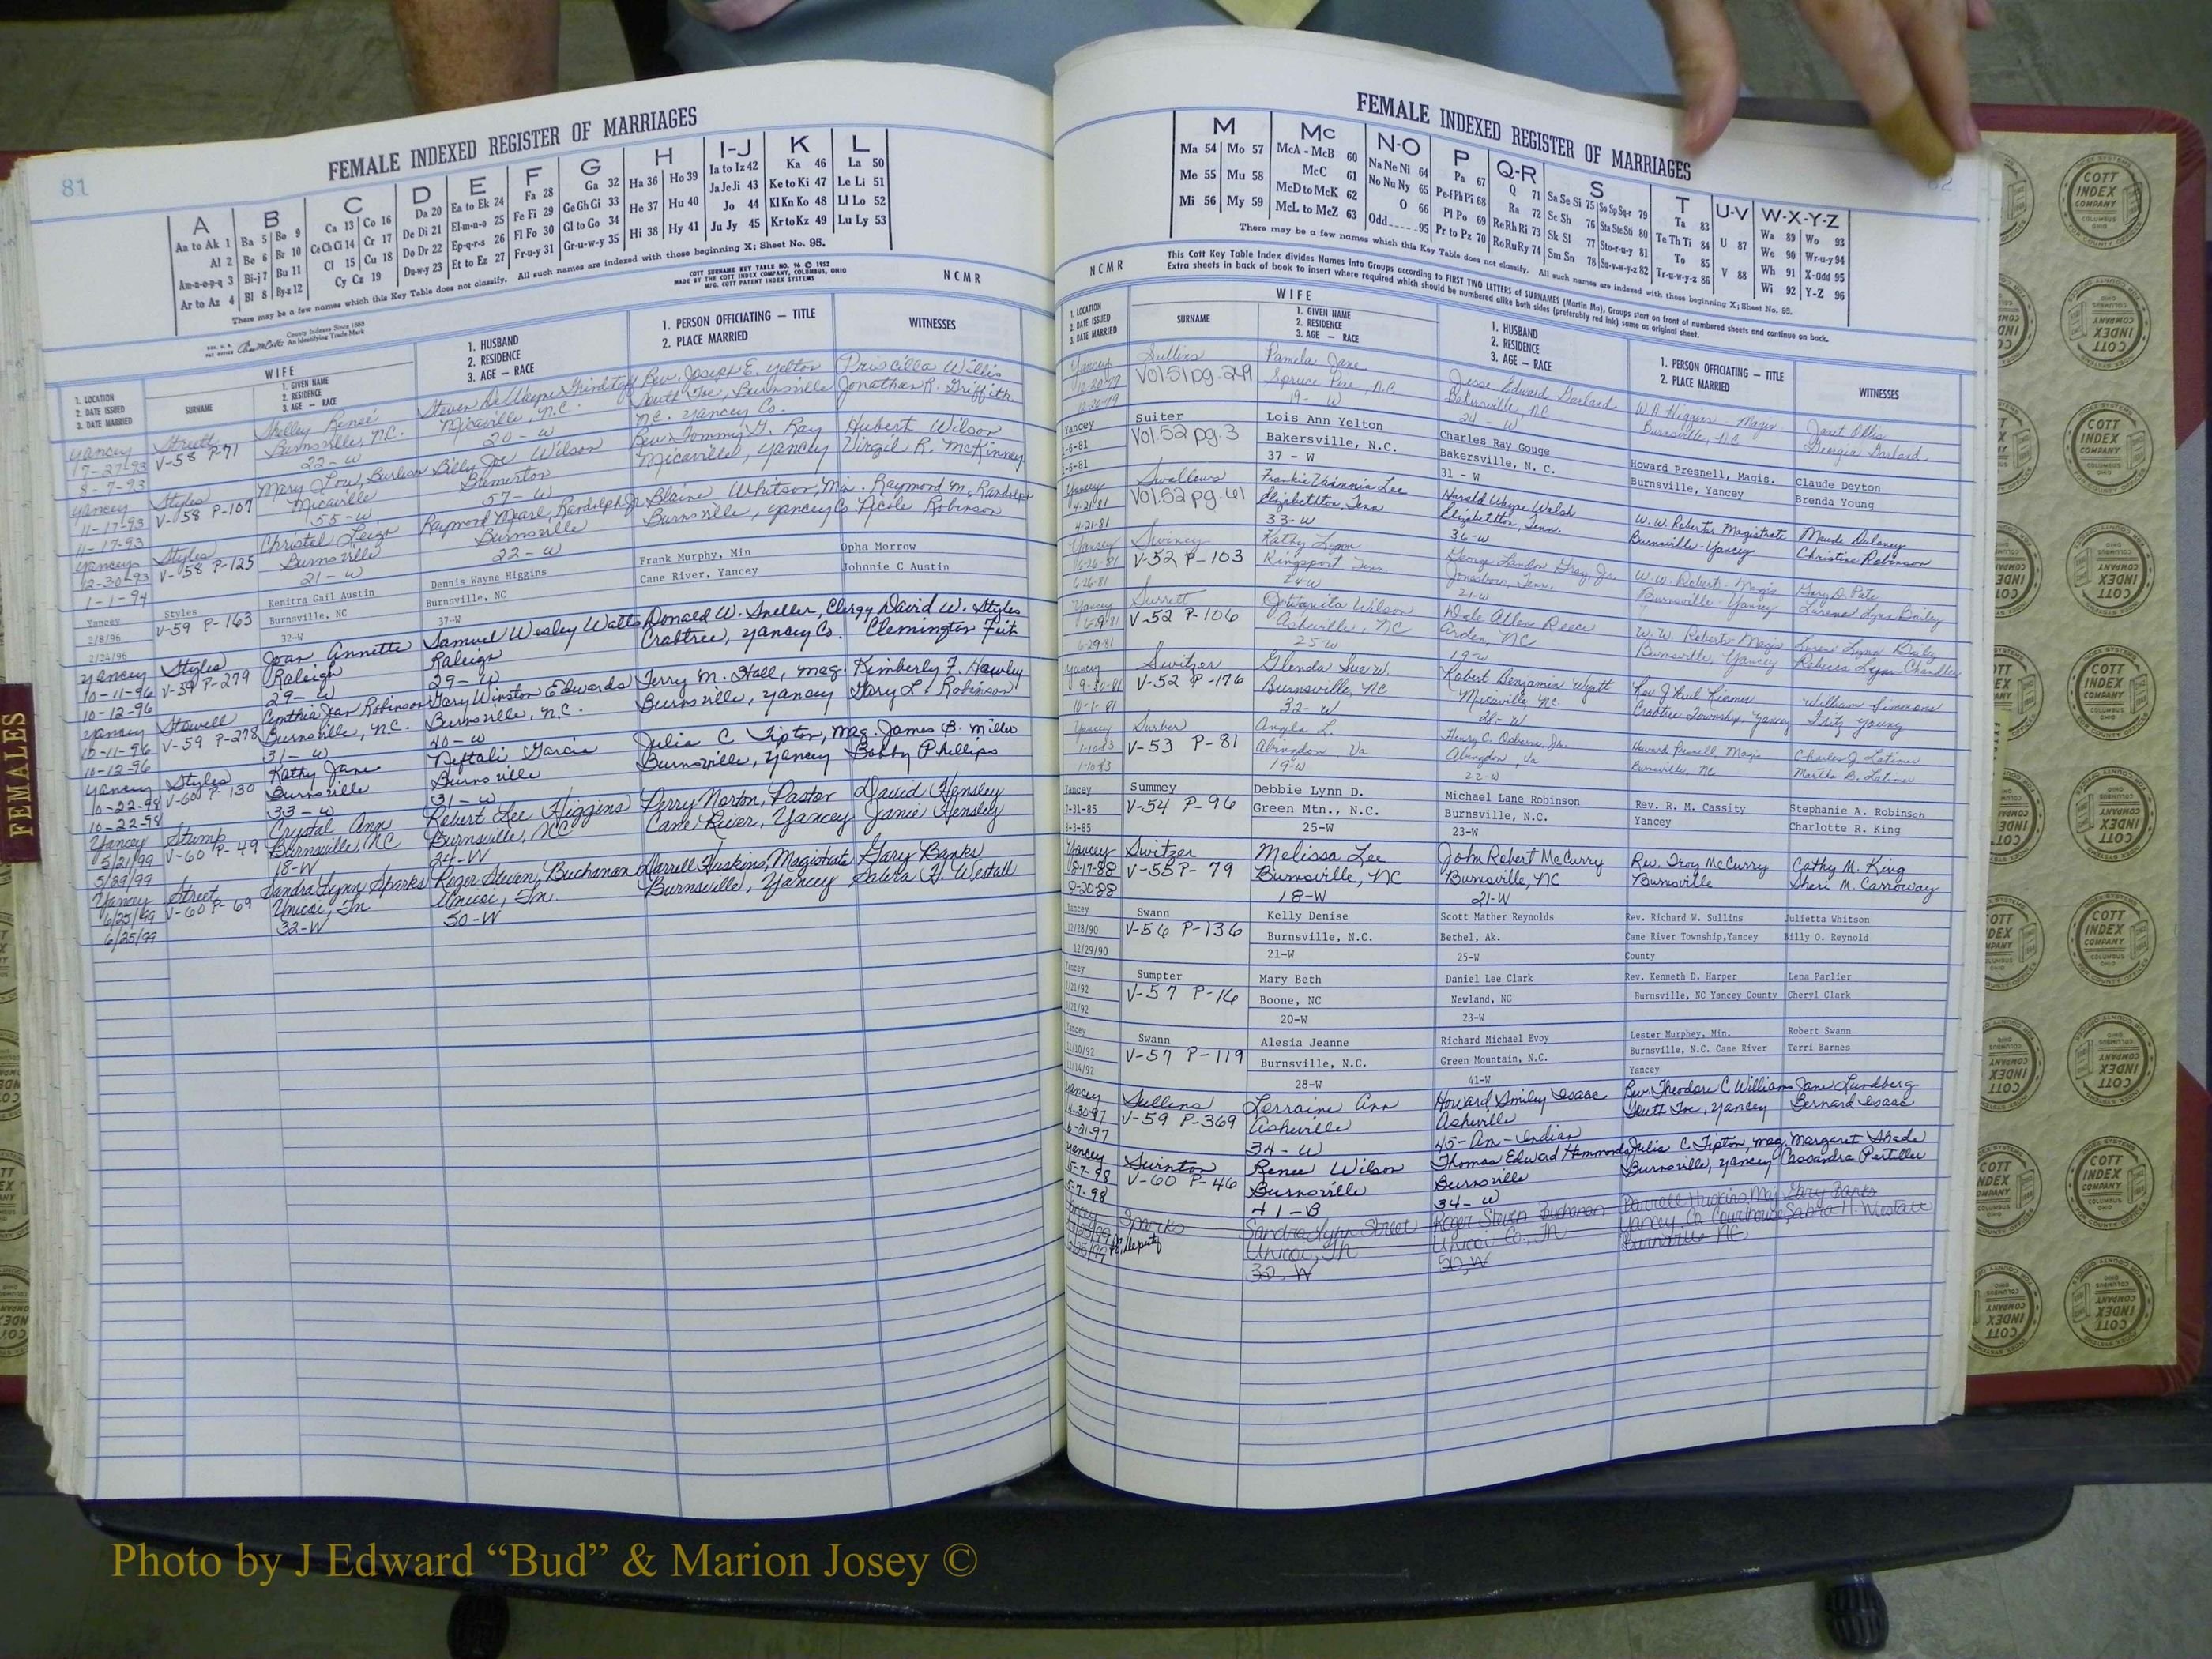 81
FEMALE INDEXED REGISTER OF MARRIAGES
A B C D E F G H I-J K L
Aa to Ak 1 Ba 5 Bo 9 Ca 13 Co 16 Da 20 Ea to Ek 24 Fa 28 Ga 32 Ha 36 Ho 39 Ia to Iz 42 Ka 46 La 50
Al 2 Be 6 Br 10 Ce Ch Ci 14 Cr 17 De Di 21 El-m-n-o 25 Fe Fi 29 Ge Gh Gi 33 He 37 Hu 40 Ja Je Ji 43 Ke to Ki 47 Le Li 51
Am-n-o-p-q 3 Bi-j 7 Bu 11 Cl 15 Cu 18 Do Dr 22 Ep-q-r-s 26 Fl Fo 30 Gl to Go 34 Hi 38 Hy 41 Jo 44 Kl Kn Ko 48 Ll Lo 52
Ar to Az 4 Bl 8 By-z 12 Cy Cz 19 Du-w-y 23 Et to Ez 27 Fr-u-y 31 Gr-u-w-y 35 Ju Jy 45 Kr to Kz 49 Lu Ly 53
There may be a few names which this Key Table does not classify. All such names are indexed with those beginning X; Sheet No. 95.
COTT SURNAME KEY TABLE NO. 96 © 1952
MADE BY THE COTT INDEX COMPANY, COLUMBUS, OHIO
MFG. COTT PATENT INDEX SYSTEMS
County Indexes Since 1888
An Identifying Trade Mark
NCMR
1. LOCATION
2. DATE ISSUED
3. DATE MARRIED
WIFE
SURNAME
1. GIVEN NAME
2. RESIDENCE
3. AGE — RACE
1. HUSBAND
2. RESIDENCE
3. AGE — RACE
1. PERSON OFFICIATING — TITLE
2. PLACE MARRIED
WITNESSES
Yancey Shelley Reneé Steven DeWayne Grindstaff Rev. Joseph E. Yelton Priscilla Willis
7-27-93 V-58 P-71 Burnsville, N.C. Micaville, N.C. South Toe, Burnsville Jonathan R. Griffith
8-7-93 22-W 20-W NC. Yancey Co.
Yancey Styles Mary Lou, Burleson Billy Joe Wilson Rev. Tommy G. Ray Hubert Wilson
11-17-93 V-58 P-107 Micaville Micaville, Yancey Virgil R. McKinney
11-17-93 55-W 57-W
Yancey Styles Christel Leigh Raymond Mearl, Randolph Jr. Blaine Whitson, Ma. Raymond M. Randolph
12-30-93 V-58 P-125 Burnsville Burnsville Burnsville, Yancey Co. Nicole Robinson
1-1-94 21-W 22-W
Yancey Styles Kenitra Gail Austin Dennis Wayne Higgins Frank Murphy, Min Opha Morrow
2/8/96 V-59 P-163 Burnsville, NC Burnsville, NC Cane River, Yancey Johnnie C Austin
2/24/96 32-W 37-W
Yancey Styles Joan Annette Samuel Wesley Watts Donald W. Sneller, Clergy David W. Styles
10-11-96 V-59 P-279 Raleigh Raleigh Crabtree, Yancey Co.
10-12-96 29-W 29-W
Yancey Stowell Cynthia Jean Robinson Gary Winston Edwards Terry M. Hall, Mag. Kimberly F. Hawley
10-11-96 V-59 P-278 Burnsville, N.C. Burnsville, N.C. Burnsville, Yancey Gary L. Robinson
10-12-96 31-W 40-W
Yancey Styles Kathy Jane Neftali Garcia Julia C Tipton, Mag. James B. Miller
10-22-98 V-60 P-130 Burnsville Burnsville Burnsville, Yancey Bobby Phillips
10-22-98 33-W 31-W
Yancey Stump Crystal Ann Robert Lee Higgins Perry Norton, Pastor David Hensley
5/21/99 V-60 P-49 Burnsville, NC Burnsville, NC Cane River, Yancey Janie Hensley
5/29/99 18-W 24-W
Yancey Street Sandra Lynn Sparks Roger Steven, Buchanan Darrell Huskins, Magistrate Gary Banks
6/25/99 V-60 P-69 Unicoi, Tn Unicoi, Tn. Burnsville, Yancey Sabra H. Westall
6/25/99 32-W 50-W
FEMALES
82
FEMALE INDEXED REGISTER OF MARRIAGES
M Mc N-O P Q-R S T U-V W-X-Y-Z
Ma 54 Mo 57 McA - McB 60 Na Ne Ni 64 Pa 67 Q 71 Sa Se Si 75 So Sp Sq-r 79 Ta 83 Wa 89 Wo 93
Me 55 Mu 58 McC 61 No Nu Ny 65 Pe-f Ph Pi 68 Ra 72 Sc Sh 76 Sta Ste Sti 80 Te Th Ti 84 U 87 We 90 Wr-u-y 94
Mi 56 My 59 McD to McK 62 O 66 Pl Po 69 Re Rh Ri 73 Sk Sl 77 Sto-r-u-y 81 To 85 V 88 Wh 91 X-Odd 95
McL to McZ 63 Odd 95 Pr to Pz 70 Ro Ru Ry 74 Sm Sn 78 Su-v-w-y-z 82 Tr-u-w-y-z 86 Wi 92 Y-Z 96
There may be a few names which this Key Table does not classify. All such names are indexed with those beginning X; Sheet No. 95.
NCMR
This Cott Key Table Index divides Names into Groups according to FIRST TWO LETTERS of SURNAMES (Martin Ma). Groups start on front of numbered sheets and continue on back.
Extra sheets in back of book to insert where required which should be numbered alike both sides (preferably red ink) same as original sheet.
1. LOCATION
2. DATE ISSUED
3. DATE MARRIED
WIFE
SURNAME
1. GIVEN NAME
2. RESIDENCE
3. AGE — RACE
1. HUSBAND
2. RESIDENCE
3. AGE — RACE
1. PERSON OFFICIATING — TITLE
2. PLACE MARRIED
WITNESSES
Yancey Sullins Pamela Jane Jesse Edward Garland W.A. Higgins - Magis Janet Ollis
12-20-79 Vol 51 pg. 249 Spruce Pine, N.C. Bakersville, NC Burnsville, NC Georgia Garland
12-20-79 19-W 24-W
Yancey Suiter Lois Ann Yelton Charles Ray Gouge Howard Presnell, Magis. Claude Deyton
2-6-81 Vol. 52 pg. 3 Bakersville, N.C. Bakersville, N. C. Burnsville, Yancey Brenda Young
2-6-81 37 - W 31 - W
Yancey Swallows Frankie Vannia Lee Harold Wayne Walsh W. W. Roberts Magistrate Maude Dulaney
4-21-81 Vol. 52 pg. 61 Elizabethton, Tenn Elizabethton, Tenn. Burnsville-Yancey Christine Robinson
4-21-81 33-W 36-W
Yancey Swiney Kathy Lynn George Landon Gray, Jr. W. W. Robert - Magis Gary D. Pate
6-26-81 V-52 P-103 Kingsport Tenn Jonesboro, Tenn. Burnsville-Yancey Lorene Lynn Bailey
6-26-81 21-W
Yancey Surrett Wilson Dale Allen Reece W. W. Roberts-Magis Lorene Lynn Bailey
6-29-81 V-52 P-106 Asheville, NC Arden, NC Burnsville, Yancey Rebecca Lynn Chandler
6-29-81 25-W 19-W
Yancey Switzer Glenda Sue W. Robert Benjamin Wyatt Rev J Paul William Simmons
9-30-81 V-52 P-176 Burnsville, NC Micaville, NC Crabtree Township, Yancey Fritz Young
10-1-81 32-W 28-W
Yancey Surber Angela L. Henry C. Osborne, Jr. Howard Presnell, Magis Charles J. Latimer
1-10-83 V-53 P-81 Abingdon Va Abingdon, Va Burnsville, NC Martha B. Latimer
1-10-83 19-W 22-W
Yancey Summey Debbie Lynn D. Michael Lane Robinson Rev. R. M. Cassity Stephanie A. Robinson
7-31-85 V-54 P-96 Green Mtn., N.C. Burnsville, N.C. Yancey Charlotte R. King
8-3-85 25-W 23-W
Yancey Switzer Melissa Lee John Robert McCurry Rev. Troy McCurry Cathy M. King
8-17-88 V-55 P-79 Burnsville, NC Burnsville, NC Burnsville Sheri M. Carroway
8-20-88 18-W 21-W
Yancey Swann Kelly Denise Scott Mather Reynolds Rev. Richard W. Sullins Julietta Whitson
12/28/90 V-56 P-136 Burnsville, N.C. Bethel, Ak. Cane River Township, Yancey Billy O. Reynold
12/29/90 21-W 25-W County
Yancey Sumpter Mary Beth Daniel Lee Clark Rev. Kenneth D. Harper Lena Parlier
/21/92 V-57 P-16 Boone, NC Newland, NC Burnsville, NC Yancey County Cheryl Clark
/21/92 20-W 23-W
Yancey Swann Alesia Jeanne Richard Michael Evoy Lester Murphey, Min. Robert Swann
11/10/92 V-57 P-119 Burnsville, N.C. Green Mountain, N.C. Burnsville, N.C. Cane River Terri Barnes
11/14/92 28-W 41-W Yancey
Yancey Sullins Lorraine Ann Howard Smiley Isaac Rev. Theodore C Williams Jane Lundberg
V-59 P-369 Asheville Asheville South Toe, Yancey Bernard Isaac
34-W 45-Am-Indian
Yancey Swinton Renee Wilson Thomas Edward Hammonds Julia C Tipton, Mag. Margaret Shade
5-7-98 V-60 P-46 Burnsville Burnsville Burnsville, Yancey Cassandra Pertiller
5-7-98 41-B 34-W
Yancey Sparks Sandra Lynn Street Roger Steven Buchanan Darrell Huskins, Maj Gary Banks
6/25/99 Deputy Unicoi, Tn Unicoi Co., Tn Yancey Co Courthouse Sabra H. Westall
6/25/99 32, W 50, W Burnsville NC
COTT INDEX COMPANY COLUMBUS OHIO
INDEX SYSTEMS FOR COUNTY OFFICES
Photo by J Edward “Bud” & Marion Josey ©